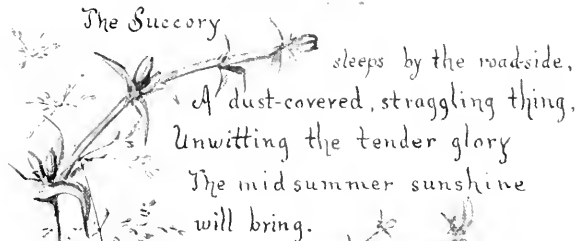 The Succory
sleeps by the road-side,
A dust-covered, straggling thing,
Unwitting the tender glory
The midsummer sunshine
will bring.